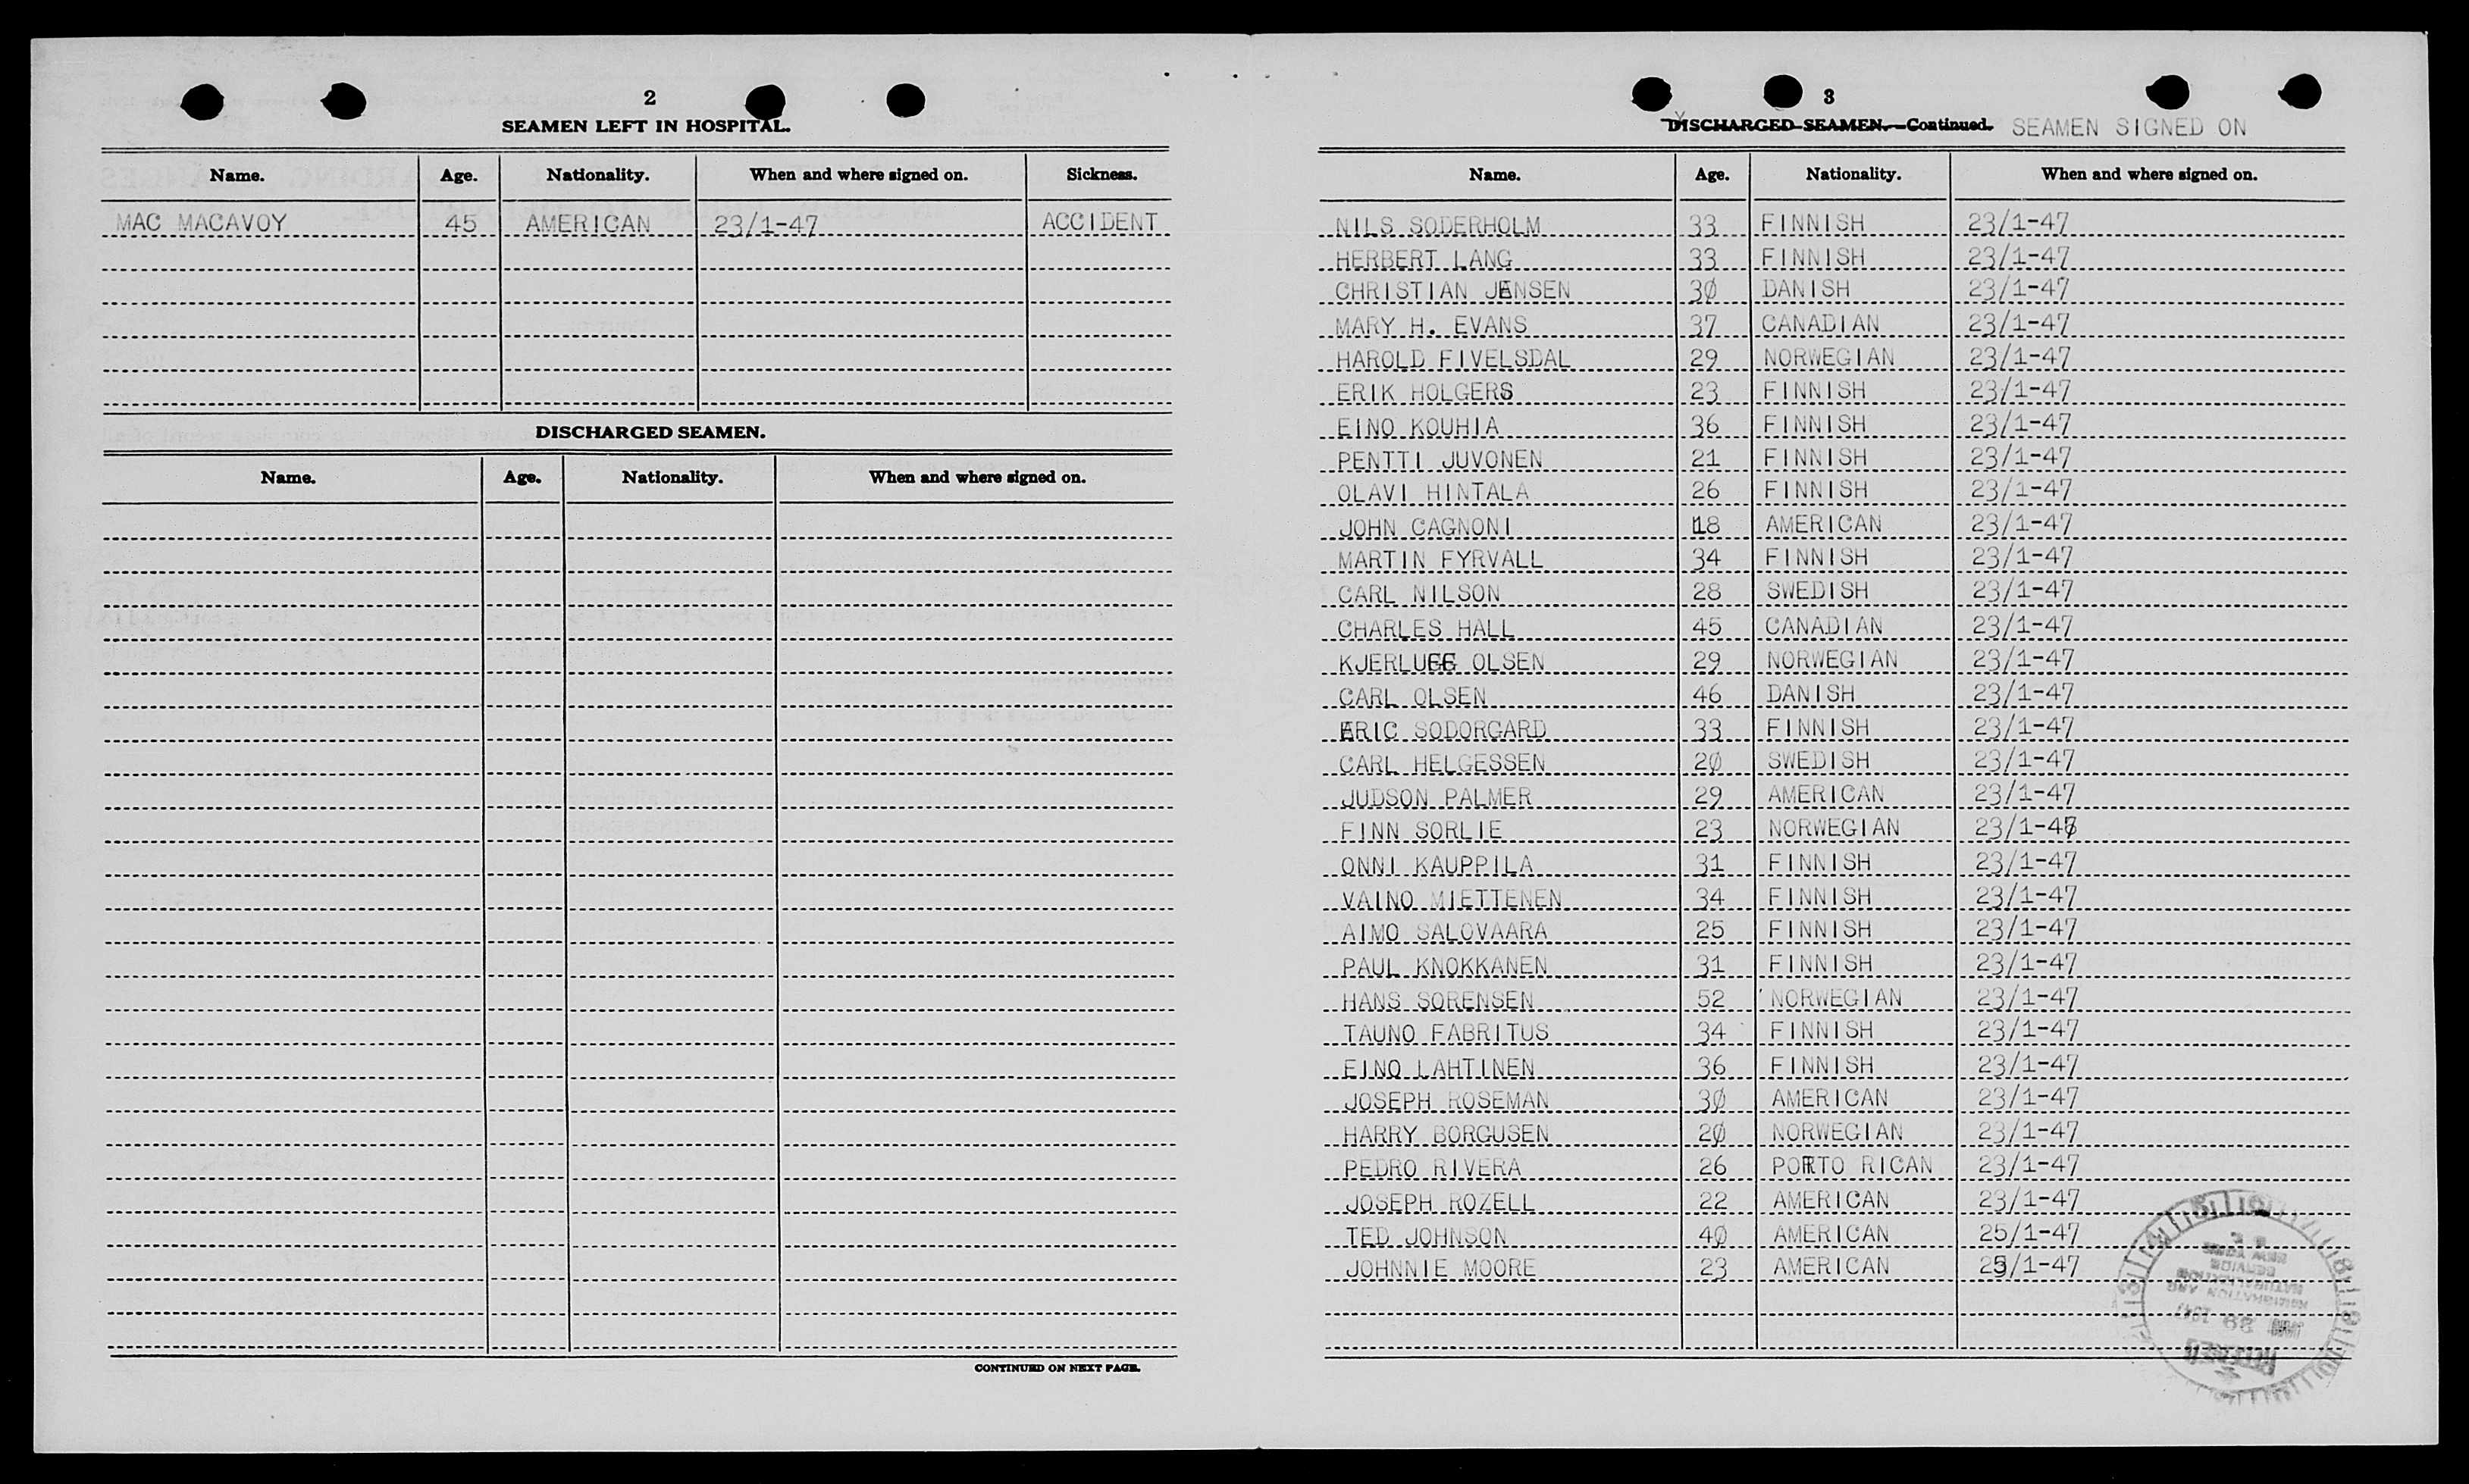 2
SEAMEN LEFT IN HOSPITAL.
Name. Age. Nationality. When and where signed on. Sickness.
MAC MACAVOY 45 AMERICAN 23/1-47 ACCIDENT
DISCHARGED SEAMEN.
Name. Age. Nationality. When and where signed on.
CONTINUED ON NEXT PAGE.
3
DISCHARGED SEAMEN.—Continued. SEAMEN SIGNED ON
Name. Age. Nationality. When and where signed on.
NILS SODERHOLM 33 FINNISH 23/1-47
HERBERT LANG 33 FINNISH 23/1-47
CHRISTIAN JENSEN 30 DANISH 23/1-47
MARY H. EVANS 37 CANADIAN 23/1-47
HAROLD FIVELSDAL 29 NORWEGIAN 23/1-47
ERIK HOLGERS 23 FINNISH 23/1-47
EINO KOUHIA 36 FINNISH 23/1-47
PENTTI JUVONEN 21 FINNISH 23/1-47
OLAVI HINTALA 26 FINNISH 23/1-47
JOHN CAGNONI 18 AMERICAN 23/1-47
MARTIN FYRVALL 34 FINNISH 23/1-47
CARL NILSON 28 SWEDISH 23/1-47
CHARLES HALL 45 CANADIAN 23/1-47
OLSEN 29 NORWEGIAN 23/1-47
CARL OLSEN 46 DANISH 23/1-47
ERIC SODORGARD 33 FINNISH 23/1-47
CARL HELGESSEN 20 SWEDISH 23/1-47
JUDSON PALMER 29 AMERICAN 23/1-47
FINN SORLIE 23 NORWEGIAN 23/1-47
ONNI KAUPPILA 31 FINNISH 23/1-47
VAINO MIETTENEN 34 FINNISH 23/1-47
AIMO SALOVAARA 25 FINNISH 23/1-47
PAUL KNOKKANEN 31 FINNISH 23/1-47
HANS SORENSEN 52 NORWEGIAN 23/1-47
TAUNO FABRITUS 34 FINNISH 23/1-47
EINO LAHTINEN 36 FINNISH 23/1-47
JOSEPH ROSEMAN 30 AMERICAN 23/1-47
HARRY BORGUSEN 20 NORWEGIAN 23/1-47
PEDRO RIVERA 26 PORTO RICAN 23/1-47
JOSEPH ROZELL 22 AMERICAN 23/1-47
TED JOHNSON 40 AMERICAN 25/1-47
JOHNNIE MOORE 23 AMERICAN 25/1-47